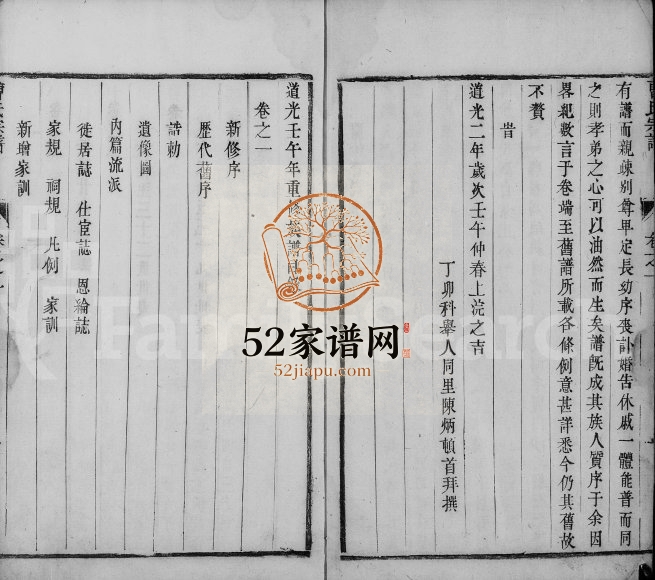 有譜而親疎别尊卑定長幼序喪訃婚告休戚一體能普而同
之則孝弟之心可以油然而生矣譜旣成其族人質序于余因
畧親數言于卷端至舊譜所載各條例意甚詳悉今仍其舊故
不贅
旹
道光二年歲次壬午仲春上浣之吉
丁卯科舉人同里陳炳頓首拜撰
道光壬午年重修
卷之一
新修序
歴代舊序
誥勅
遺像圖
內篇流派
徙居誌 仕宦誌 恩綸誌
家規 祠規 凡例 家訓
新增家訓
52家谱网
52jiapu.com